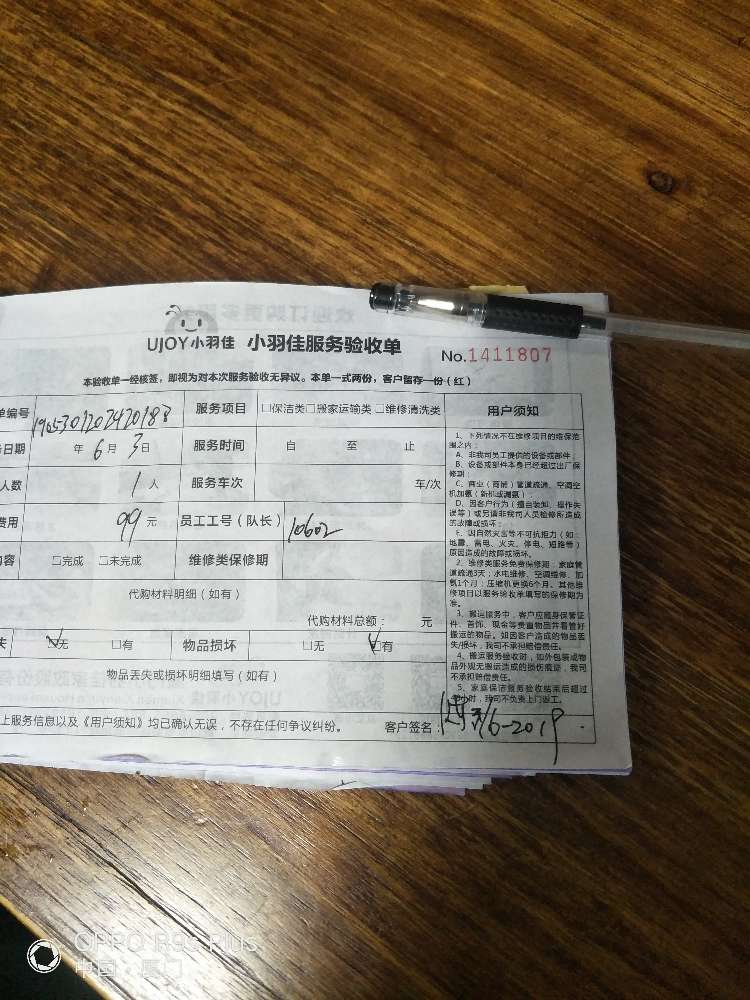 UJOY小羽佳 小羽佳服务验收单 No.1411807
本验收单一经核签，即视为对本次服务验收无异议。本单一式两份，客户留存一份（红）
单编号 服务项目 □保洁类□搬家运输类 □维修清洗类 用户须知
日期 年 6 月 3 日 服务时间 自 至 止
人数 1 人 服务车次 车/次
费用 99 元 员工工号（队长） 10602
内容 □完成 □未完成 维修类保修期
代购材料明细（如有）
代购材料总额： 元
失 □无 □有 物品损坏 □无 □有
物品丢失或损坏明细填写（如有）
上服务信息以及《用户须知》均已确认无误，不存在任何争议纠纷。 客户签名 /6-2019
1、下列情况不在维修项目的维保范
围之内：
A、非我司员工提供的设备或部件
B、设备或部件本身已经超过出厂保
修期；
C、商业（商铺）管道疏通、空调空
机加氨（新机或漏氨）
D、因客户行为（擅自装卸、操作失
误等）或另请非我司人员检修所造成
的故障或损坏；
E、因自然灾害等不可抗拒力（如：
地震、雷电、火灾、停电、短路等）
原因造成的故障或损坏。
2、维修类服务免费保修期：家庭管
道疏通3天；水电维修、空调维修、加
氨1个月；压缩机更换6个月。其他维
修项目以服务验收单填写的保修期为
准。
3、搬运服务中，客户应随身保管证
件、首饰、现金等贵重物品并看管好
搬运的物品。如因客户造成的物品丢
失/损坏，我司不承担赔偿责任。
4、搬运服务验收时，如外包装或物
品外观无搬运造成的损伤痕迹，我司
不承担赔偿责任。
5、家庭保洁服务验收结束后超过
小时，我司不负责上门返工。
OPPO R9s Plus
中国·厦门